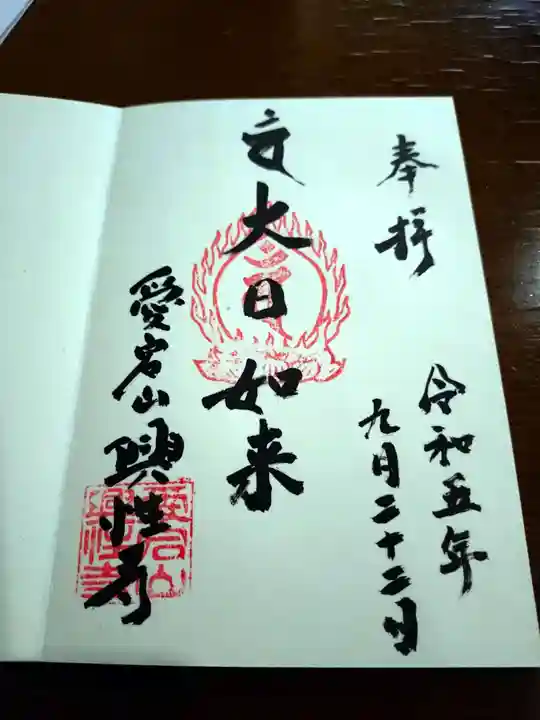 奉拝
令和五年
九月二十二日
大日如来
愛宕山興性寺